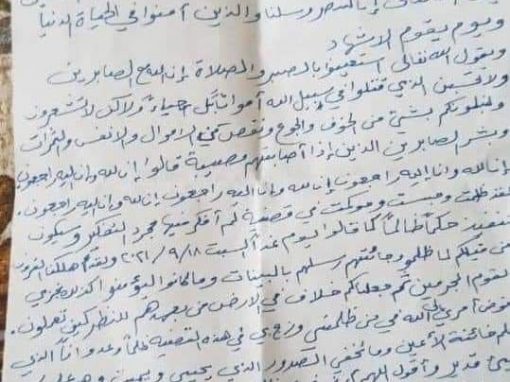 إنا لننصر رسلنا والذين آمنوا في الحياة الدنيا
ويوم يقوم الاشهاد
ويقول الله تعالى استعينوا بالصبر والصلاة إن الله مع الصابرين
ولا تحسبن الذين قتلوا في سبيل الله أمواتاً بل أحياء ولاكن لا تشعرون
ولنبلونكم بشئ من الخوف والجوع ونقص من الاموال والانفس والثمرات
وبشر الصابرين الذين إذا أصابتهم مصيبة قالوا إنا لله وانا اليه راجعون
إنا لله وانا إليه راجعون إنا لله وانا اليه راجعون إنا لله وانا اليه راجعون.
لقد ظلمت وحبست وحوكمت في قضية لم أفكر فيها مجرد التفكير وسيكون
تنفيذ حكماً ظالماً كما قالوا اليوم غداً السبت ٢٠٢١/٩/١٨ ولقد أهلكنا القرون
من قبلكم لما ظلموا وجائتهم رسلهم بالبينات وما كانوا ليؤمنوا كذلك نجزي
القوم المجرمين ثم جعلناكم خلائف في الارض من بعدهم لننظر كيف تعملون.
أمري إلى الله في من ظلمني وزج بي في هذه القضية ظلماً وعدواناً الذي
خائنة الأعين وما تخفي الصدور الذي يحيي ويميت وهو على
قدير وأقول اللهم